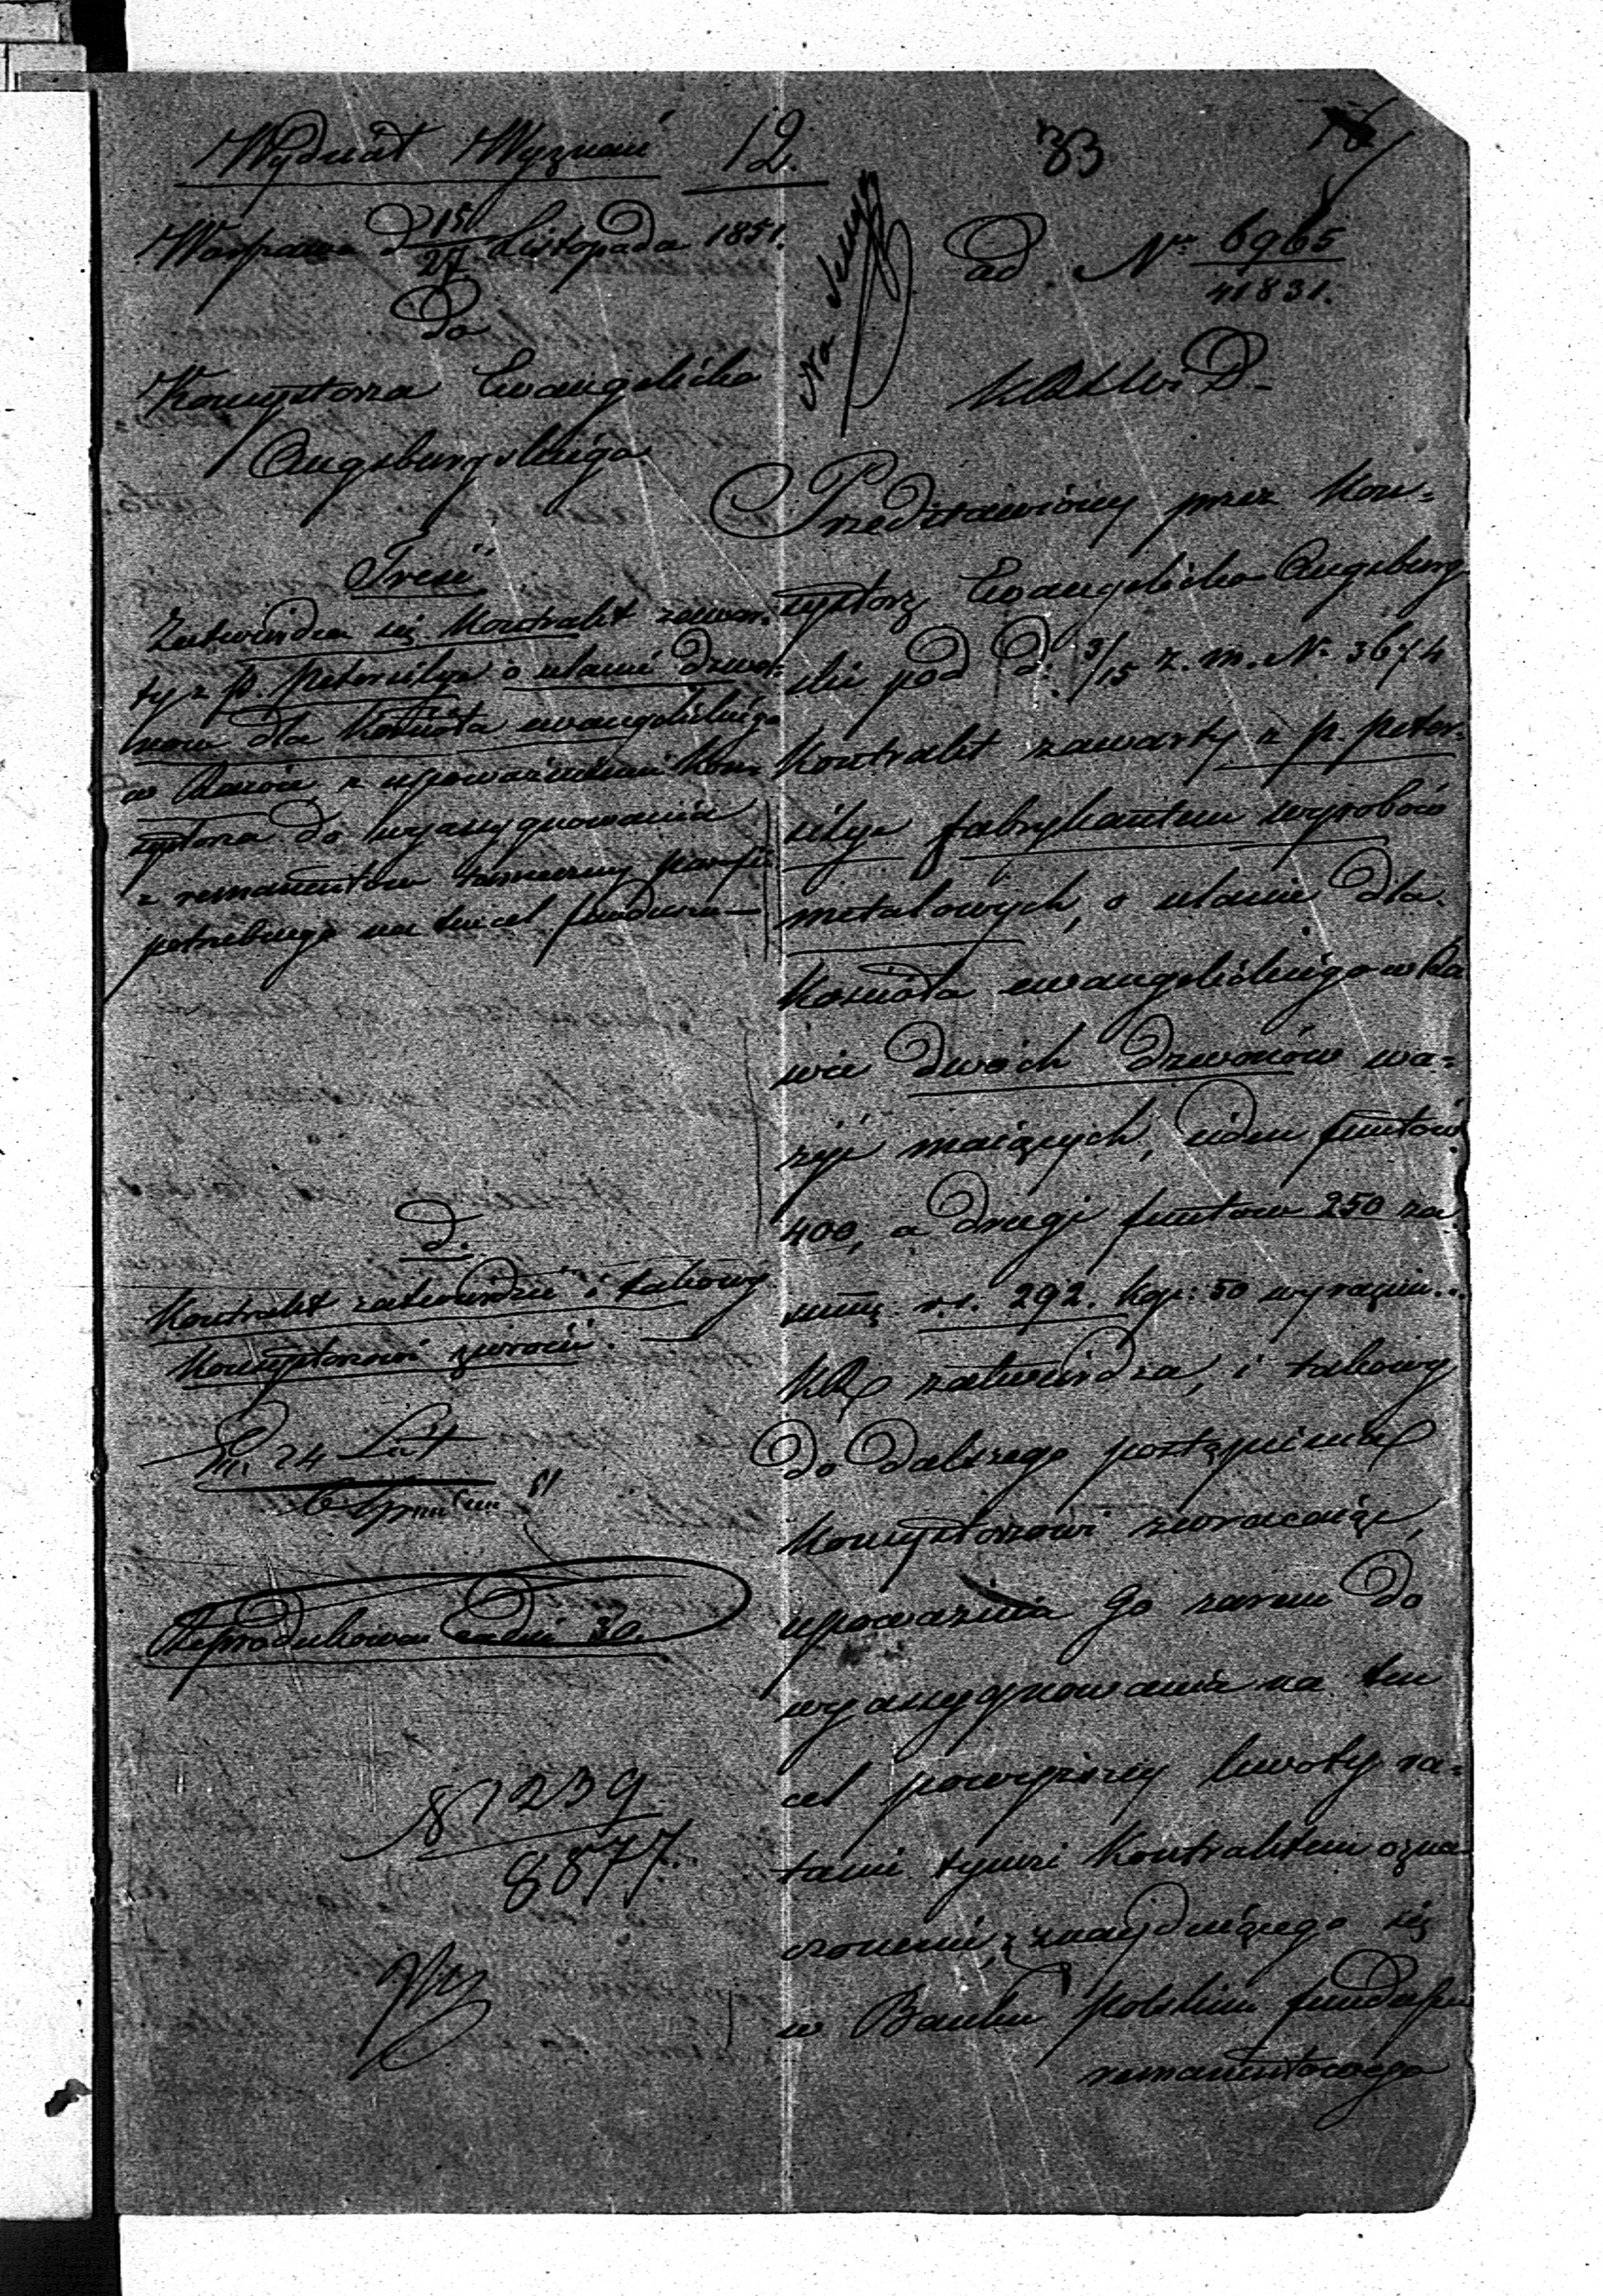 Wydział Wyznań 12.
33
Warszawa d 15/27 Listopada 1851.
ad Nr 6965/41831.
Do
Konsystorza Ewangelicko
Augsburgskiego
Treść
Zatwierdza się Kontrakt zawar-
ty z p. Petersilge o ulanie dzwo-
now dla Kościoła ewangelickiego
w Rawie z upoważnieniem Kon-
systorza do wyasygnowania
z remanentow tameczney parafii
potrzebnego na ten cel funduszu —
d.
Kontrakt zatwierdzić i takowy
Konsystorzowi zwrócić. —
Reprodukowa za dni 30.
87239
8877.
Przedstawiony przez Kon-
systorz Ewangelicko Augsburg
ski pod d. 3/15 z. m. Nr 3674
Kontrakt zawarty z p. Peter-
silge fabrykantem wyrobów
metalowych, o ulanie dla
Kościoła ewangelickiego w Ra
wie dwóch dzwonów wa-
gę maiących, ieden funtów
400, a drugi funtow 250 za
summę rs. 292. kop: 50 wyraźnie...
KR zatwierdza, i takowy
do dalszego postąpienia
Konsystorzowi zwracaiąc,
upoważnia go zarem do
wyasygnowania na ten
cel powyższey kwoty ra-
tami tymże Kontraktem ozna
czonemi, z znayduiącego się
w Banku Polskim funduszu
remanentowego